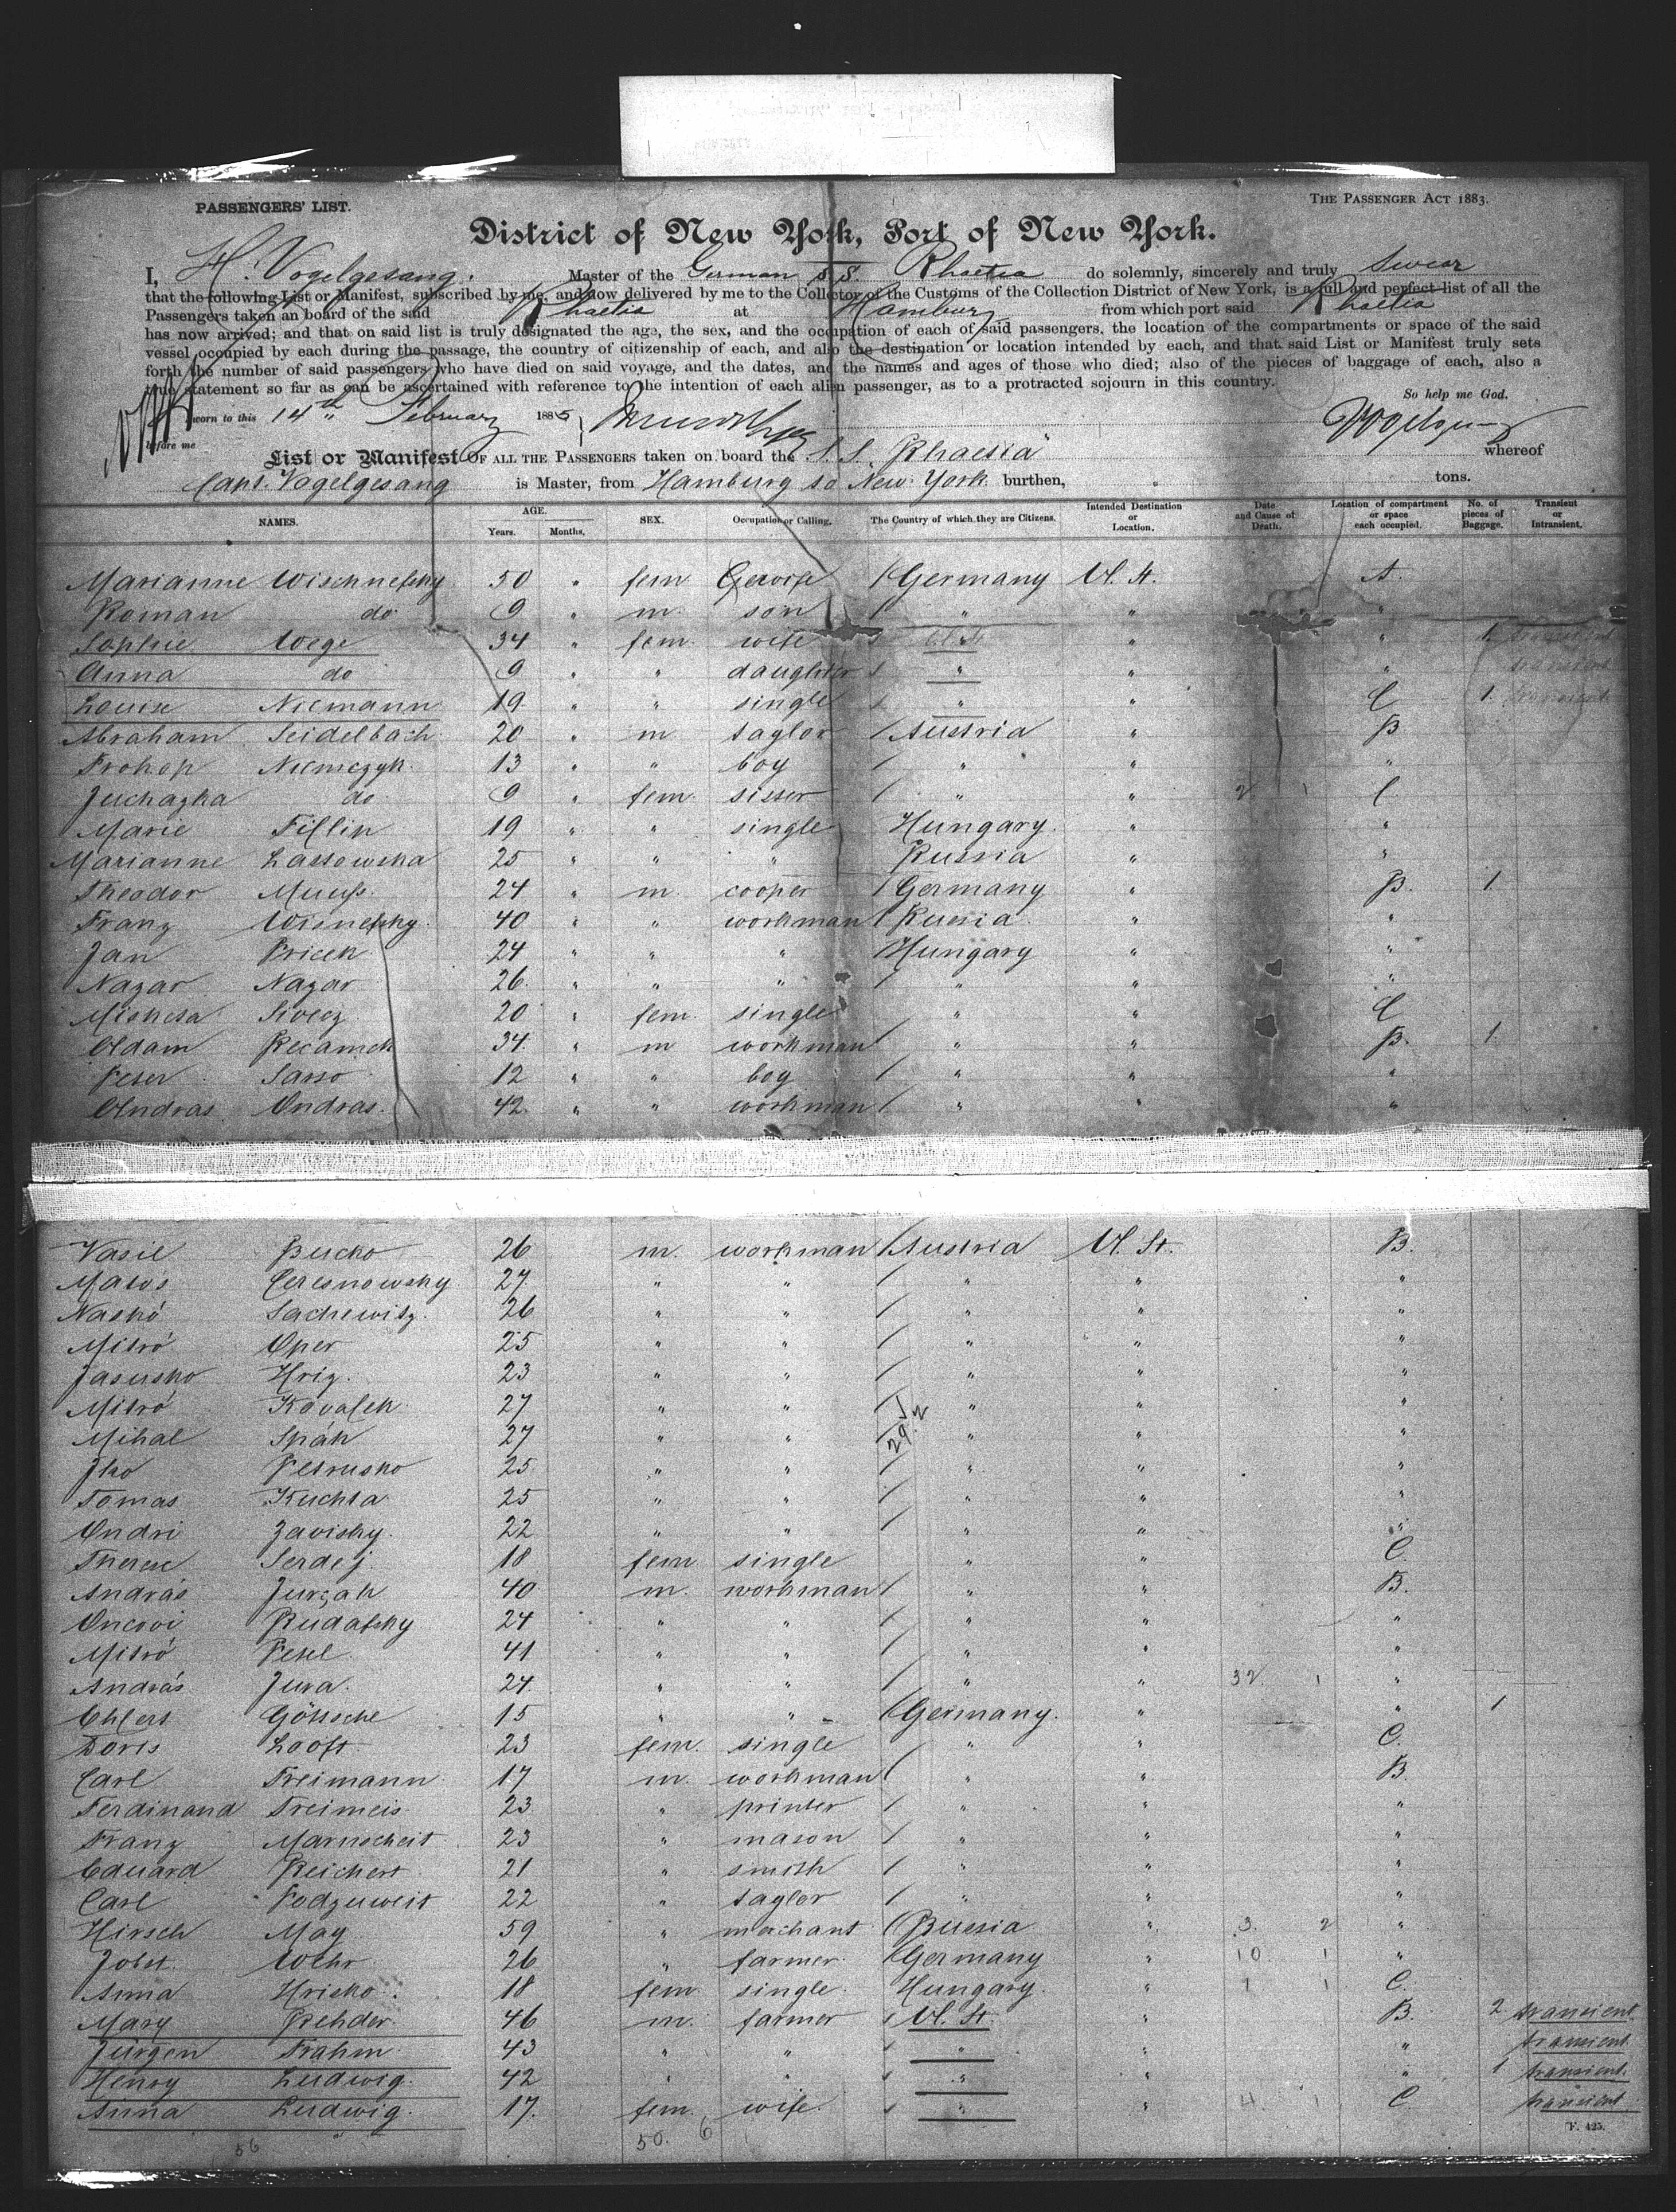 PASSENGERS' LIST.
THE PASSENGER ACT 1883.
District of New York, Port of New York.
I, H. Vogelgesang. Master of the German S. S. Rhaetia do solemnly, sincerely and truly swear
that the following List or Manifest, subscribed by me, and now delivered by me to the Collector of the Customs of the Collection District of New York, is a full and perfect list of all the
Passengers taken on board of the said Rhaetia at Hamburg from which port said Rhaetia
has now arrived; and that on said list is truly designated the age, the sex, and the occupation of each of said passengers, the location of the compartments or space of the said
vessel occupied by each during the passage, the country of citizenship of each, and also the destination or location intended by each, and that said List or Manifest truly sets
forth the number of said passengers who have died on said voyage, and the dates, and the names and ages of those who died; also of the pieces of baggage of each, also a
true statement so far as can be ascertained with reference to the intention of each alien passenger, as to a protracted sojourn in this country.
So help me God.
Sworn to this 14th February 1885
before me
List or Manifest OF ALL THE PASSENGERS taken on board the S. S. Rhaetia whereof
Capt. Vogelgesang is Master, from Hamburg to New York burthen, tons.
NAMES. AGE. Years. Months. SEX. Occupation or Calling. The Country of which they are Citizens. Intended Destination or Location. Date and Cause of Death. Location of compartment or space each occupied. No. of pieces of Baggage. Transient or Intransient.
Marianne Wischnefsky 50 " fem Germany U. St. A.
Roman do 9 " m. son " " "
Sophie Wege 34 " fem. wife U. St. " " 1 transient
Anna do 9 " " daughter " " " transient
Louise Niemann 19 " " single " " C 1 transient
Abraham Seidelbach 20 " m taylor Austria " B
Prokop Niemczyk 13 " " boy " " "
Juchazka do 9 " fem. sister " " 2 1 C.
Marie Fillin 19 " " single Hungary. " "
Marianne Lassowska 25 " " " Russia " "
Theodor Muuss. 24 " m. cooper Germany " B. 1
Franz Wisnefsky. 40 " " workman Russia " "
Jan Pricek 24 " " " Hungary " "
Nazar Nazar 26. " " " " " "
Sivecz 20 " fem. single " " C
Adam Recamek 34. " m workman " " B. 1.
Peter Sarso 12 " " boy " " "
Andras Ondras. 42. " " workman " " "
Vasil Bucko 26 m. workman Austria U. St. B.
Matos Ceresnowsky 27. " " " " "
Naskó Sachewitz. 26 " " " " "
Mitró Oper 25 " " " " "
Jasusko Hriz. 23 " " " " "
Mitró Kovalek 27 " " " " "
Mihal Spák 27 " " " " "
Petrusko 25 " " " " "
Tomas Kuchta 25 " " " " "
Ondri Zavisky. 22 " " " " "
Therese Serdej 18 fem single " " C.
András Jurzak 40 m. workman " " B.
Rudafsky 24 " " " " "
Mitró Petel 41 " " " " "
András Jura. 24. " " " " 32 1 "
Ehlert Göttsche 15 " " Germany. " " 1
Doris Looft. 23 fem. single " " C.
Carl Freimann 17 m. workman " " B
Ferdinand Treimeis 23 " printer " " "
Franz Marnscheit 23 " mason " " "
Eduard Reichert 21 " smith " " "
Carl Podzuweit 22 " taylor " " "
Hirsch May 59 " merchant Russia " 3. 2 "
Jobst Wehr 26 " farmer. Germany " 10. 1 "
Anna Hricko. 18 fem single. Hungary. " 1 1 C.
Mary Rehder. 46 m. farmer U. St. " B. 2 transient
Jürgen Frahm 43 " " " " " transient.
Henry Ludwig. 42 " " " " " 1 transient.
Anna Ludwig. 17. fem. wife. " " 4. 1 C transient
F. 425.
56 50. 6